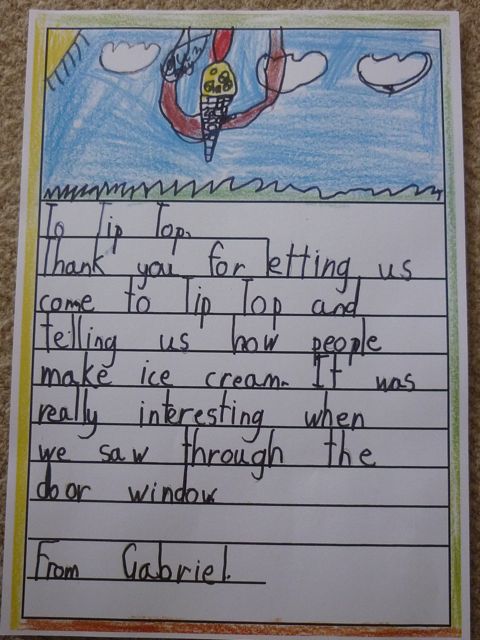 To Tip Top.
Thank you for letting us
come to Tip Top and
telling us how people
make ice cream. It was
really interesting when
we saw through the
door window
From Gabriel.